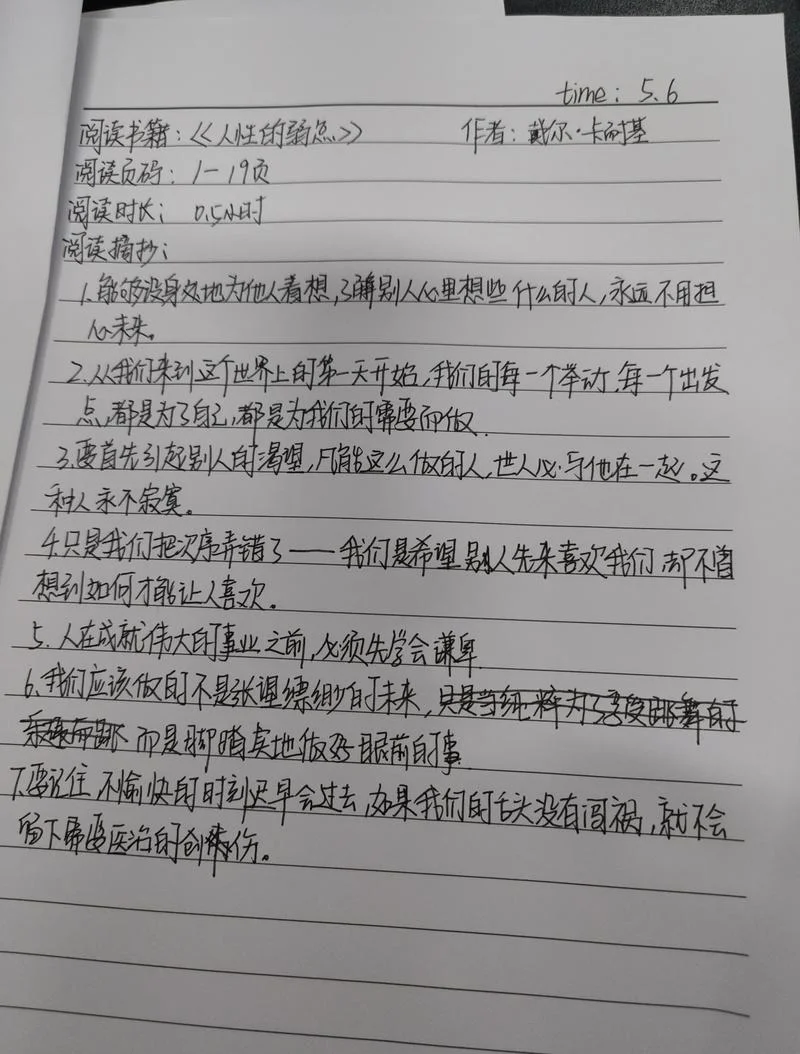 time: 5.6
阅读书籍:《人性的弱点》 作者:戴尔·卡耐基
阅读页码: 1—19页
阅读时长: 0.5小时
阅读摘抄:
1.能够设身处地为他人着想,了解别人心里想些什么的人,永远不用担
心未来。
2.从我们来到这个世界上的第一天开始,我们的每一个举动,每一个出发
点,都是为了自己,都是为我们的需要而做.
3.要首先引起别人的渴望,凡能这么做的人,世人必与他在一起。这
种人永不寂寞。
4.只是我们把次序弄错了——我们是希望别人先来喜欢我们,却不曾
想到如何才能让人喜欢。
5.人在成就伟大的事业之前,必须先学会谦卑.
6.我们应该做的不是张望缥缈的未来,
而是脚踏实地做好眼前的事.
7.要记住,不愉快的时刻迟早会过去,如果我们的舌头没有闯祸,就不会
留下需要医治的创伤。